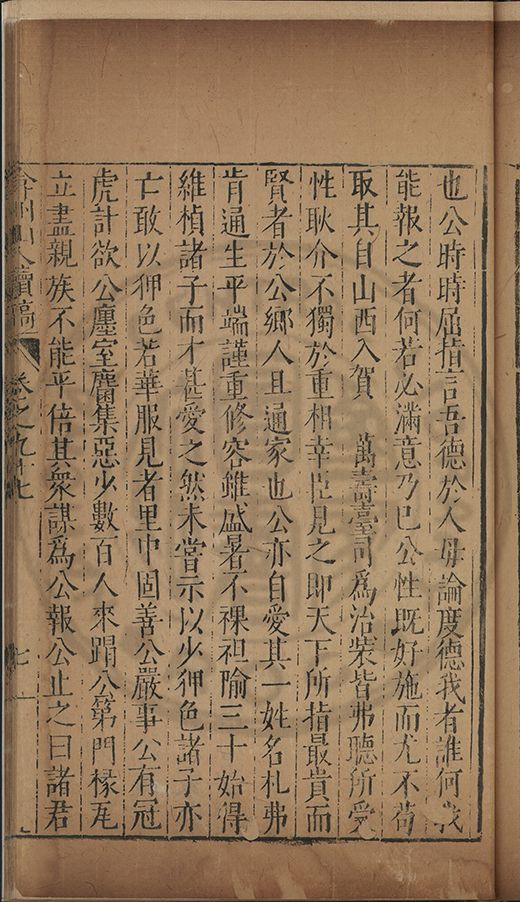 也公時時屈指言吾德於人毋論度德我者誰何我
能報之者何若必滿意乃已公性既好施而尤不苟
取其自山西入賀　萬壽臺司為治裝皆弗聽所受
性耿介不獨於重相幸臣見之即天下所指最貴而
賢者於公鄉人且通家也公亦自愛其一姓名札弗
肯通生平端謹重修容雖盛暑不裸袒隃三十始得
維楨諸子而才甚愛之然未嘗示以少狎色諸子亦
亡敢以狎色若華服見者里中固善公嚴事公有冠
虎計欲公廛室麕集惡少數百人來蹋公第門椽瓦
立盡親族不能平倍其衆謀為公報公止之曰諸君
弇州山人續稿　卷之九十七　七